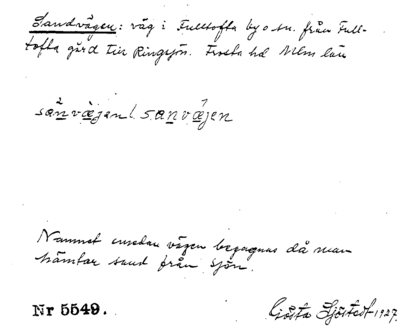 Sandvägen: väg i Fulltofta by o sn. från Full-
tofta gård till Ringsjön. Frosta hd Mlm län
sanvæjen l. sanvæjen
Namnet emedan vägen begagnas då man
hämtar sand från sjön.
Nr 5549. Gösta Sjöstedt 1927.